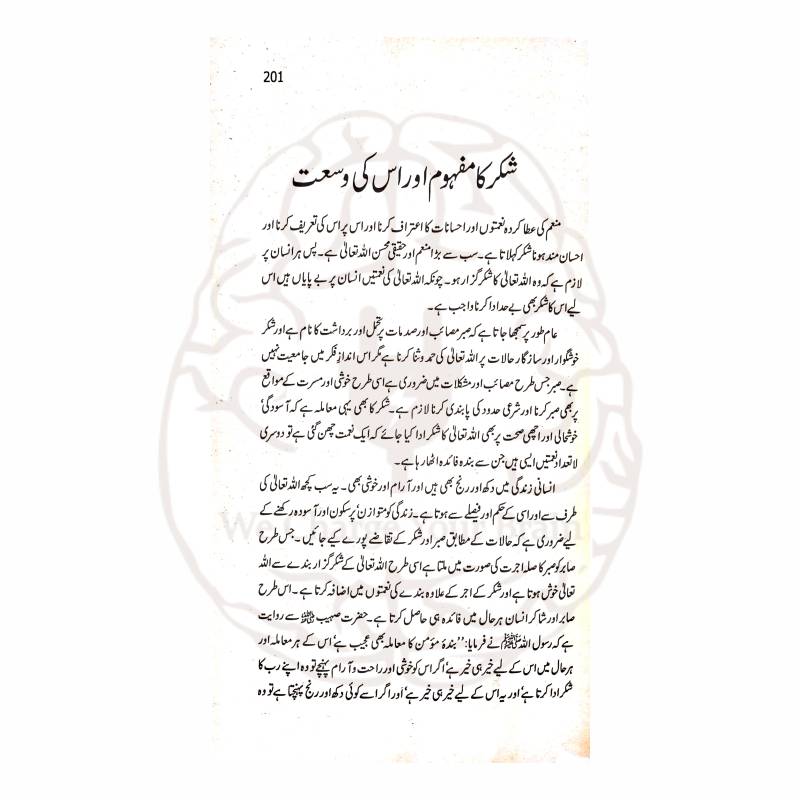 201
شکر کا مفہوم اور اس کی وسعت
منعم کی عطا کردہ نعمتوں اور احسانات کا اعتراف کرنا اور اس پر اس کی تعریف کرنا اور
احسان مند ہونا شکر کہلاتا ہے۔ سب سے بڑا منعم اور حقیقی محسن اللہ تعالیٰ ہے۔ پس ہر انسان پر
لازم ہے کہ وہ اللہ تعالیٰ کا شکر گزار ہو۔ چونکہ اللہ تعالیٰ کی نعمتیں انسان پر بے پایاں ہیں اس
لیے اس کا شکر بھی بے حد ادا کرنا واجب ہے۔
عام طور پر سمجھا جاتا ہے کہ صبر مصائب اور صدمات پر تحمل اور برداشت کا نام ہے اور شکر
خوشگوار اور سازگار حالات پر اللہ تعالیٰ کی حمد و ثنا کرنا ہے مگر اس اندازِ فکر میں جامعیت نہیں
ہے۔ صبر جس طرح مصائب اور مشکلات میں ضروری ہے اسی طرح خوشی اور مسرت کے مواقع
پر بھی صبر کرنا اور شرعی حدود کی پابندی کرنا لازم ہے۔ شکر کا بھی یہی معاملہ ہے کہ آسودگی‘
خوشحالی اور اچھی صحت پر بھی اللہ تعالیٰ کا شکر ادا کیا جائے کہ ایک نعمت چھن گئی ہے تو دوسری
لاتعداد نعمتیں ایسی ہیں جن سے بندہ فائدہ اٹھا رہا ہے۔
انسانی زندگی میں دکھ اور رنج بھی ہیں اور آرام اور خوشی بھی۔ یہ سب کچھ اللہ تعالیٰ کی
طرف سے اور اسی کے حکم اور فیصلے سے ہوتا ہے۔ زندگی کو متوازن‘ پرسکون اور آسودہ رکھنے کے
لیے ضروری ہے کہ حالات کے مطابق صبر اور شکر کے تقاضے پورے کیے جائیں۔ جس طرح
صابر کو صبر کا صلہ اجرت کی صورت میں ملتا ہے اسی طرح اللہ تعالیٰ کے شکر گزار بندے سے اللہ
تعالیٰ خوش ہوتا ہے اور شکر کے اجر کے علاوہ بندے کی نعمتوں میں اضافہ کرتا ہے۔ اس طرح
صابر اور شاکر انسان ہر حال میں فائدہ ہی حاصل کرتا ہے۔ حضرت صہیب رضی اللہ عنہ سے روایت
ہے کہ رسول اللہ ﷺ نے فرمایا: ’’بندۂ مؤمن کا معاملہ بھی عجیب ہے‘ اس کے ہر معاملہ اور
ہر حال میں اس کے لیے خیر ہی خیر ہے‘ اگر اس کو خوشی اور راحت و آرام پہنچے تو وہ اپنے رب کا
شکر ادا کرتا ہے‘ اور یہ اس کے لیے خیر ہی خیر ہے‘ اور اگر اسے کوئی دکھ اور رنج پہنچتا ہے تو وہ